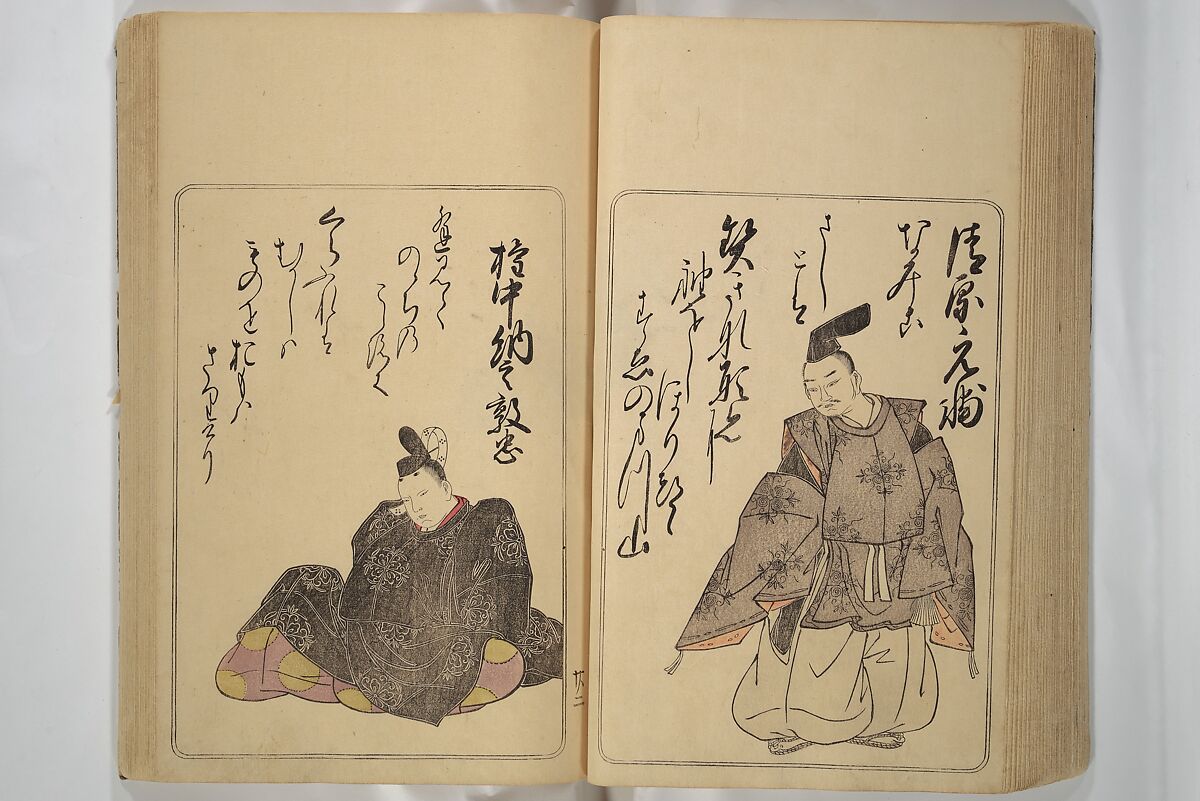 清原元輔
契きな形みに
袖をし
ほりつゝ
すゑのまつ山
なみこ
さし
とは
権中納言敦忠
逢見て
のちの
こゝろに
くらふれは
むかしは
ものをおもは
さりけり
廿二